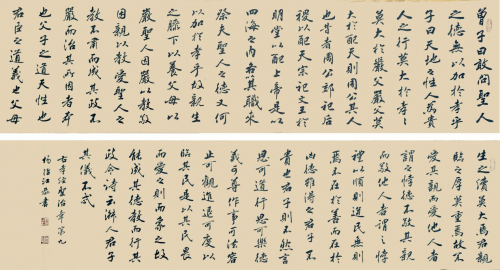 曾子曰敢問聖人
之德無以加於孝乎
子曰天地之性人為貴
人之行莫大於孝孝
莫大於嚴父嚴父莫
大於配天則周公其人
也昔者周公郊祀后
稷以配天宗祀文王於
明堂以配上帝是以
四海之內各以其職來
祭夫聖人之德又何
以加於孝乎故親生
之膝下以養父母日
嚴聖人因嚴以教敬
因親以教愛聖人之
教不肅而成其政不
嚴而治其所因者本
也父子之道天性也
君臣之義也父母
生之續莫大焉君親
臨之厚莫重焉故不
愛其親而愛他人者
謂之悖德不敬其親
而敬他人者謂之悖
禮以順則逆民無則
焉不在於善而皆在於
凶德雖得之君子不
貴也君子則不然言
思可道行思可樂德
義可尊作事可法容
止可觀進退可度以
臨其民是以其民畏
而愛之則而象之故
能成其德教而行其
政令詩云淑人君子
其儀不忒
孝經聖治章第九
書